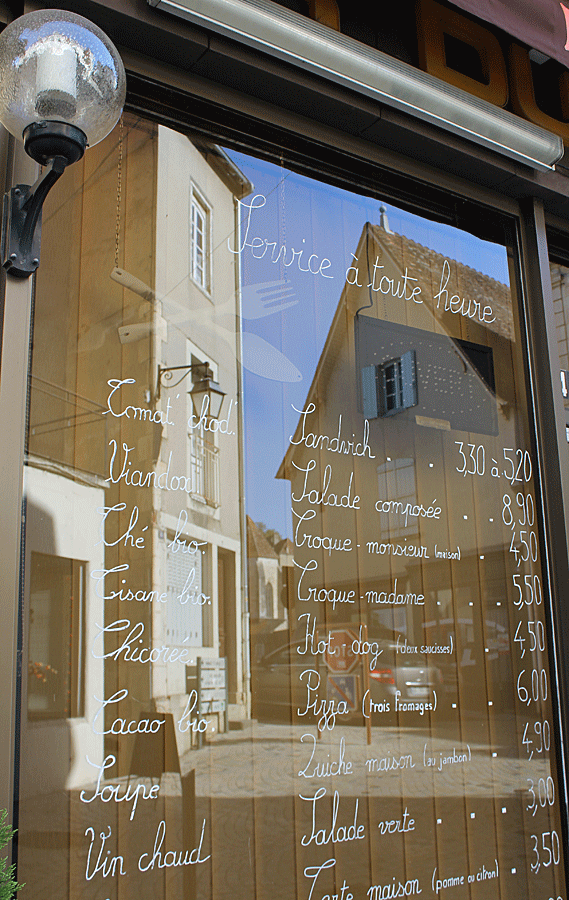 Service à toute heure
Tomat' chod'.
Viandox
Thé bio.
Tisane bio.
Chicorée.
Cacao bio.
Soupe
Vin chaud
Sandwich . . 3,30 à 5,20
Salade composée . . 8,90
Croque-monsieur (maison) . 4,50
Croque-madame . . . 5,50
Hot-dog (deux saucisses) . 4,50
Pizza (trois fromages) . . 6,00
Quiche maison (au jambon) . 4,90
Salade verte . . . 3,00
Tarte maison (pomme ou citron) . 3,50